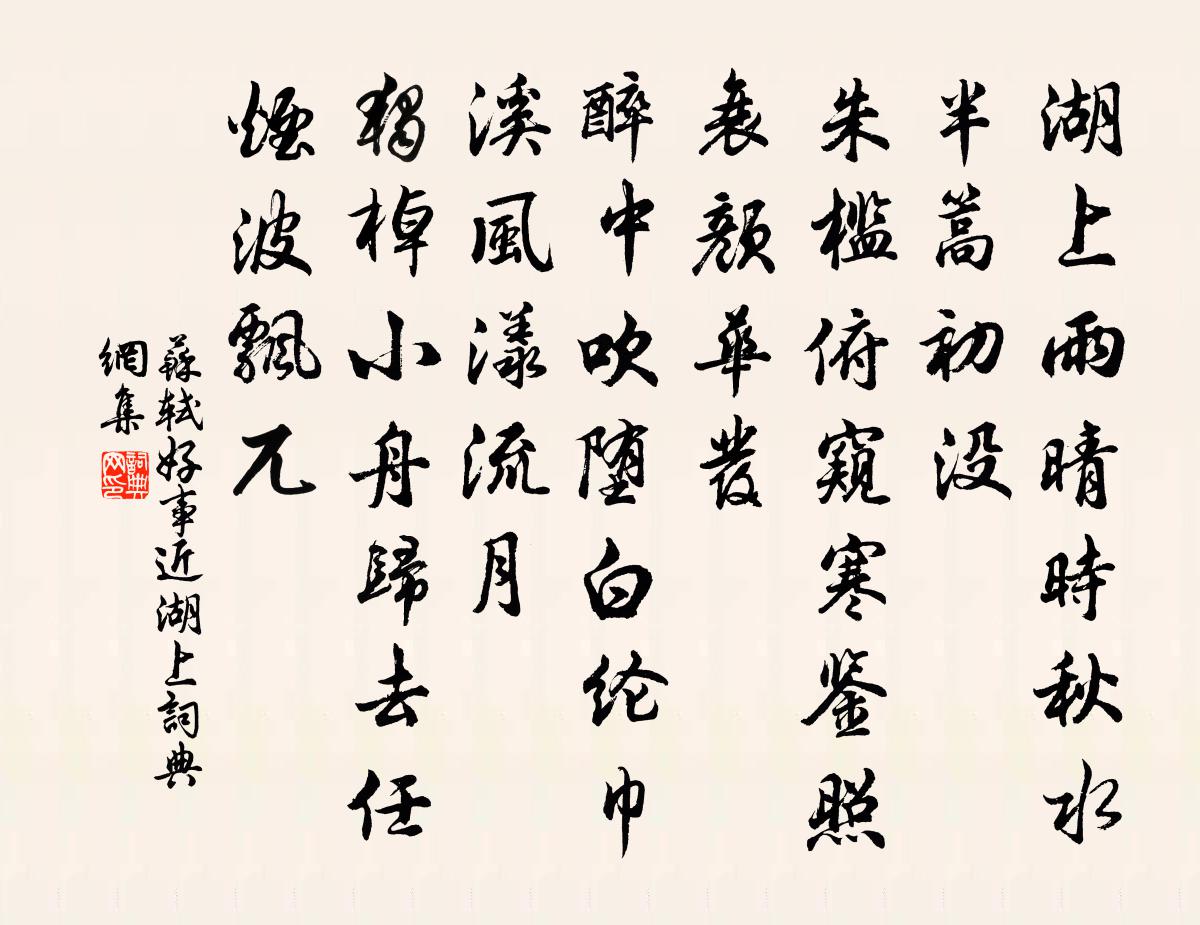 湖上雨晴時秋水
半篙初没
朱檻俯窺寒鑒照
衰顏華發
醉中吹堕白纶巾
溪風漾流月
獨棹小舟歸去任
煙波飄兀
蘇轼好事近湖上詞典
網集
詞典
网印